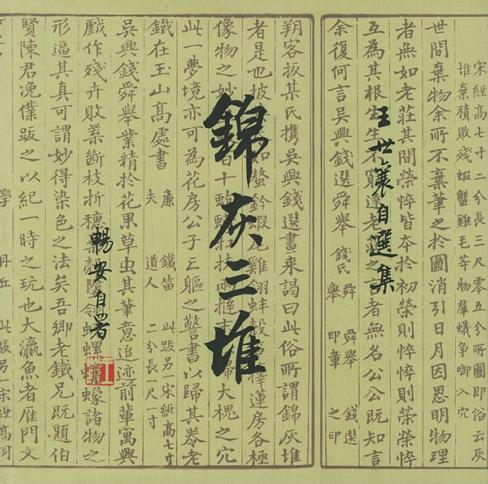 宋經高七寸二分長三尺零五分所圖即俗云灰
堆棄積敗殘蝦蟹雞毛等物群蟻爭啣入穴
世間棄物余所不棄筆之於圖消引日月因思明物理
者無如老莊其間榮悴皆本於初榮則悴悴則榮榮悴
互為其根生生不者無名公公既知言
余復何言吳興錢選舜舉 錢氏 舜舉 舜舉印章 錢選之印
王世襄自選集
錦灰三堆
暢安自署
朔客扳某氏携吳興錢選畫來謁曰此俗所謂錦灰堆
者是也披如螯鈐蝦尾雞翎蚌殼蓮房各極
像物之妙大槐之穴
此一夢境亦可為花房公子三軀之警書以歸其卷老
鐵在玉山高處書 廉夫 鐵笛道人 此跋另一宋紙高七寸二分長一尺一寸
吳興錢舜舉業精於花果草虫其筆意追跡前輩寓興
戲作殘卉敗斷枝折諸物之
形逼其真可謂妙得染色之法矣吾鄉老鐵兄既題伯
賢陳君浼僕跋之以紀一時之玩也大瀛魚者雁門文